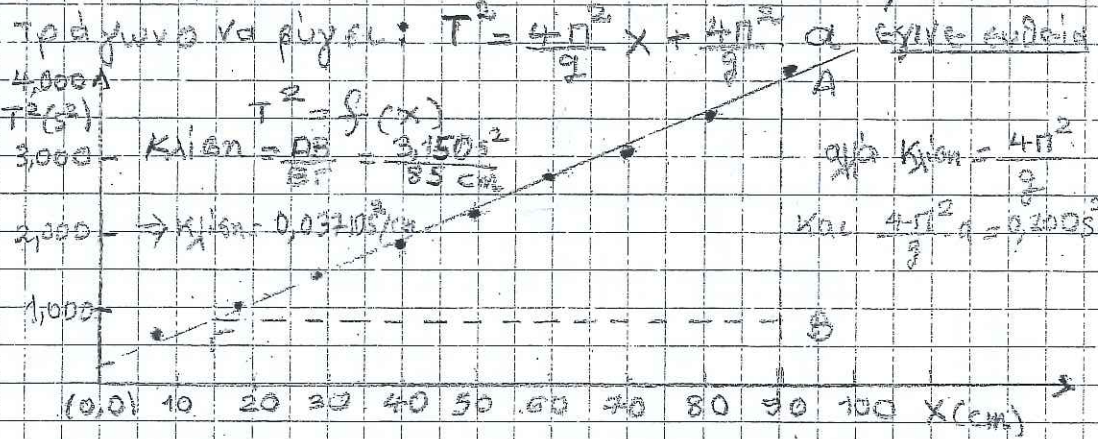 να φύγει: T² = 4π²/g x + 4π²/g α έγινε ευθεία
4,000 A
T²(s²) T² = f(x)
3,000 Κλίση = ΑΒ/ΒΓ = 3,150s²/85 cm αφού κλίση = 4π²/g
2,000 → κλίση = 0,0371s²/cm και 4π²/g α = 0,200s²
1,000 Γ B
(0,0) 10 20 30 40 50 60 70 80 90 100 X(cm)